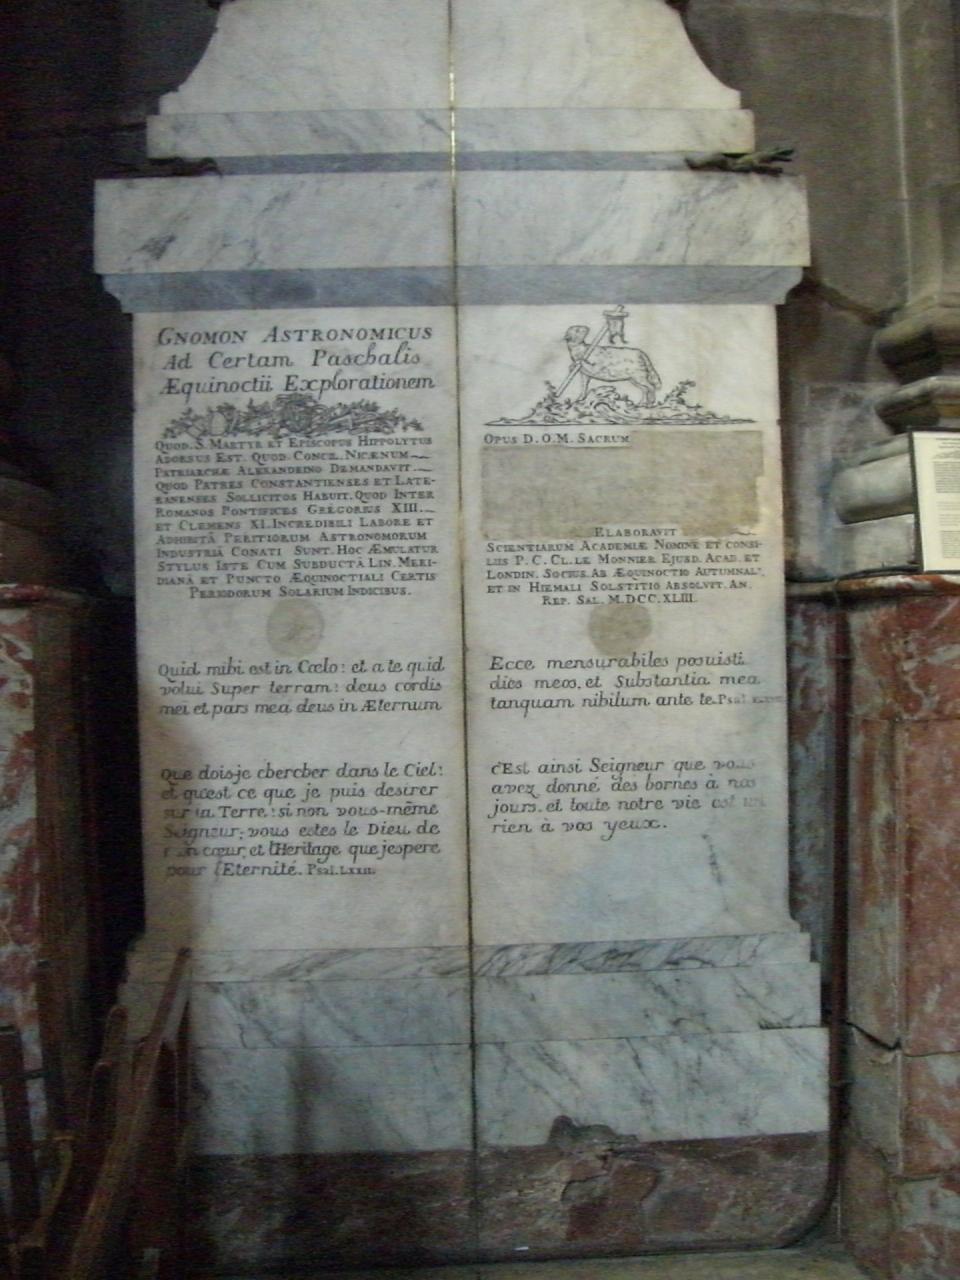 GNOMON ASTRONOMICUS
Ad Certam Paschalis
Æquinoctii Explorationem
QUOD. S. MARTYR ET EPISCOPUS HIPPOLYTUS
ADORSUS EST. QUOD. CONCIL. NICÆNUM
PATRIARCHÆ ALEXANDRINO DEMANDAVIT.
QUOD PATRES CONSTANTIENSES ET LATE-
RANENSES SOLLICITOS HABUIT. QUOD INTER
ROMANOS PONTIFICES GREGORIUS XIII.
ET CLEMENS XI. INCREDIBILI LABORE ET
ADHIBITÂ PERITIORUM ASTRONOMORUM
INDUSTRIÂ CONATI SUNT. HOC ÆMULATUR
STYLUS ISTE CUM SUBDUCTÂ LIN. MERI-
DIANÂ ET PUNCTO ÆQUINOCTIALI CERTIS
PERIODORUM SOLARIUM INDICIBUS.
Quid mihi est in Cœlo: et a te quid
volui Super terram: deus cordis
mei et pars mea deus in Æternum
Que dois-je chercher dans le Ciel:
et qu'est ce que je puis desirer
sur la Terre: si non vous-même
Seigneur; vous estes le Dieu de
mon cœur, et l'Heritage que j'espere
pour l'Eternité. PSAL. LXXII.
OPUS D.O.M. SACRUM
ELABORAVIT
SCIENTIARUM ACADEMIÆ NOMINE ET CONSI-
LIIS P. C. CL. LE MONNIER EJUSD. ACAD. ET
LONDIN. SOCIUS. AB ÆQUINOCTIO AUTUMNALI
ET IN HIEMALI SOLSTITIO ABSOLVIT. AN.
REP. SAL. M.DCC.XLIII.
Ecce mensurabiles posuisti
dies meos. et Substantia mea
tanquam nihilum ante te. PSAL
c'Est ainsi Seigneur que vous
avez donné des bornes à nos
jours. et toute notre vie est un
rien à vos yeux.